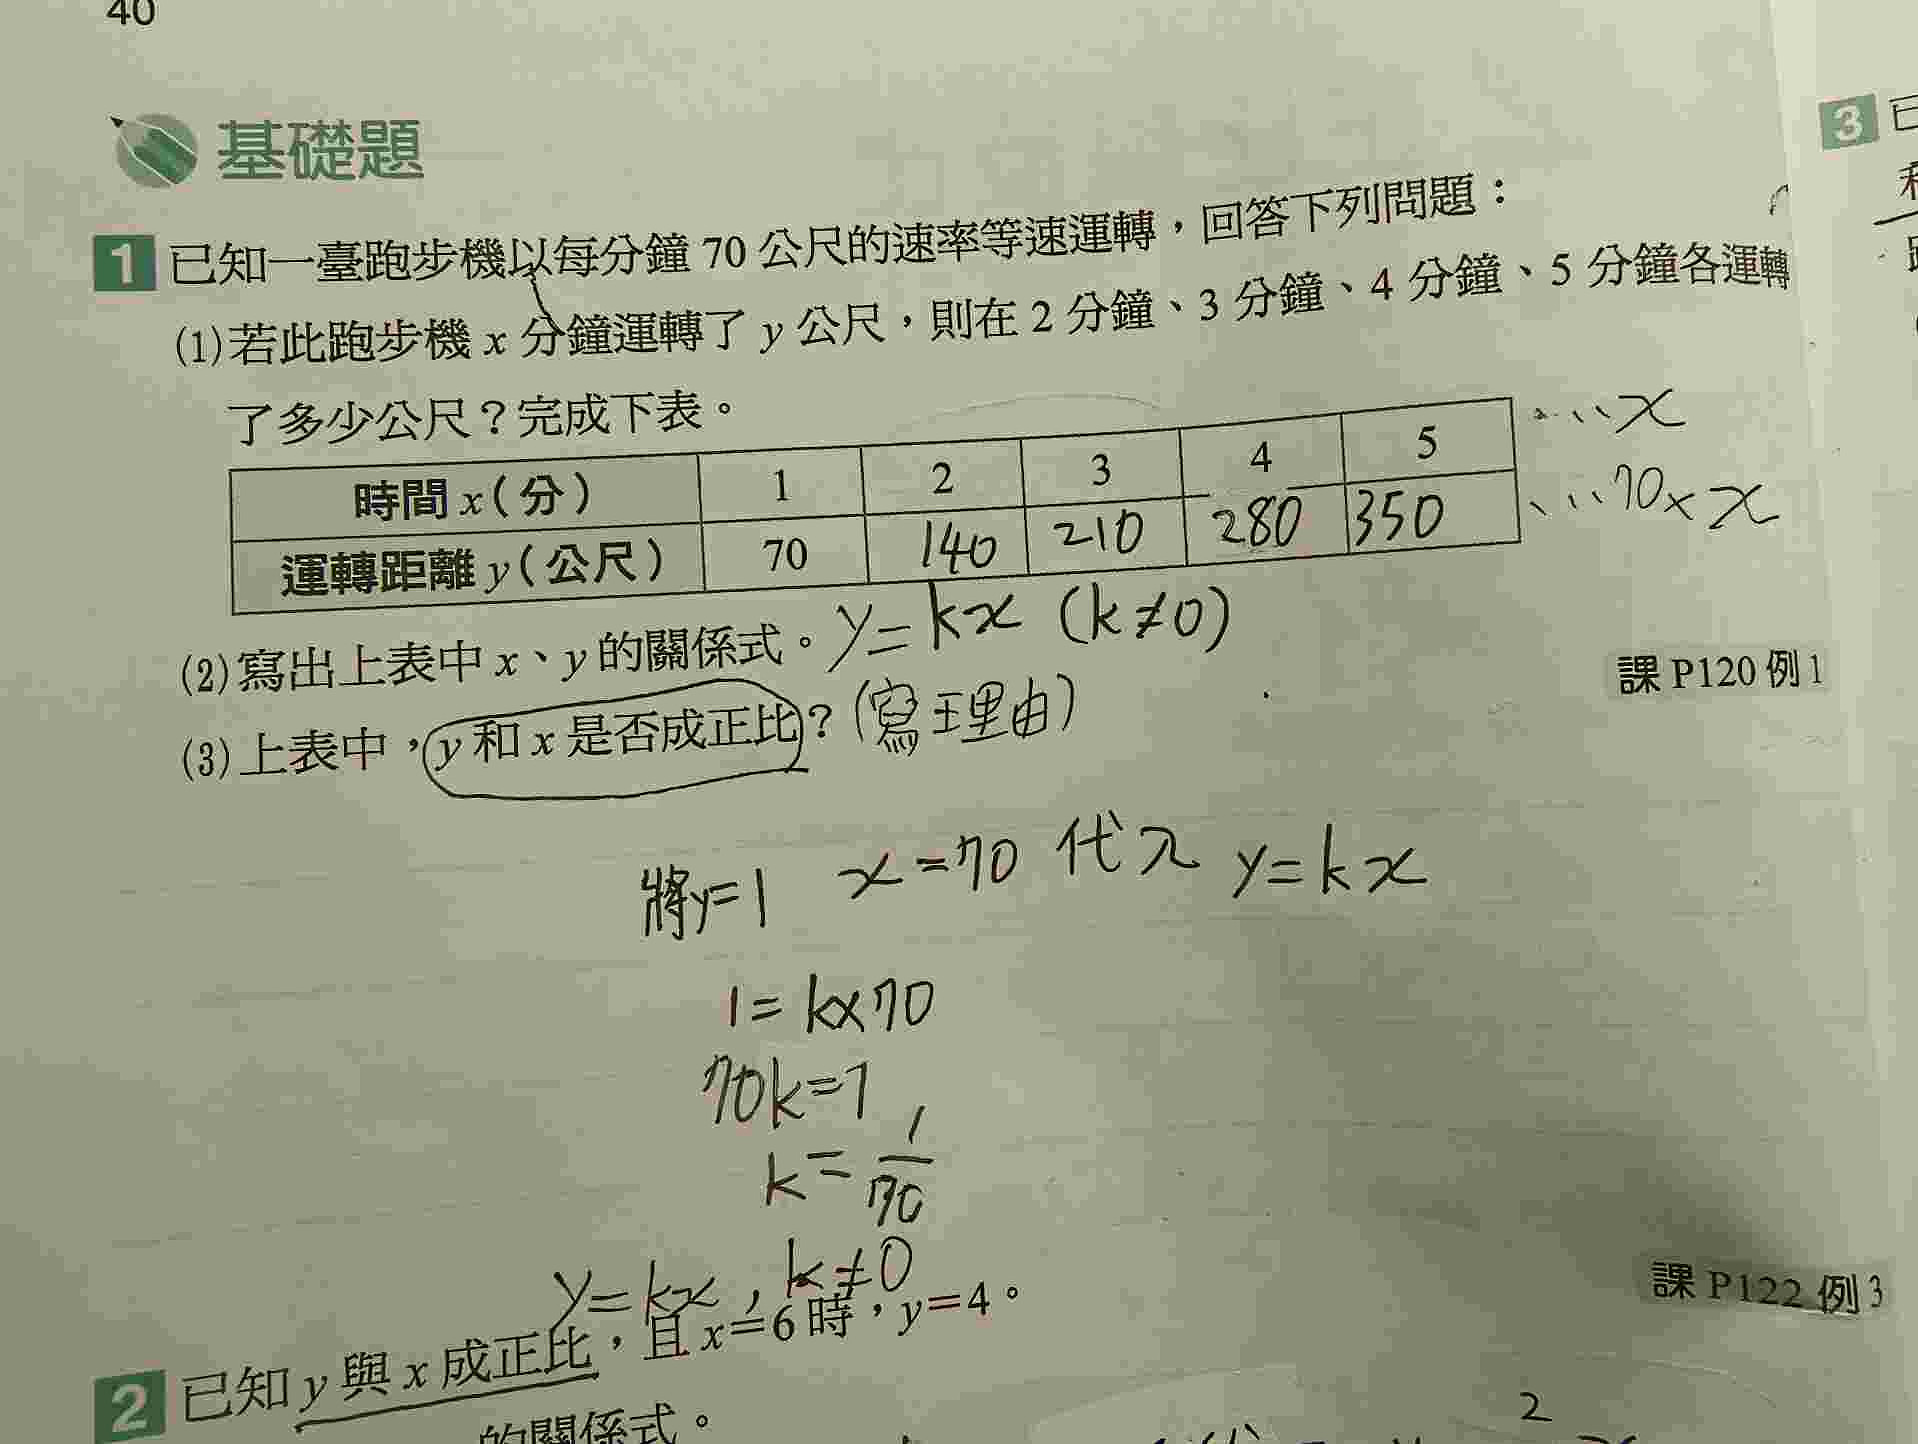 40
基礎題
1 已知一臺跑步機以每分鐘 70 公尺的速率等速運轉，回答下列問題：
(1)若此跑步機 x 分鐘運轉了 y 公尺，則在 2 分鐘、3 分鐘、4 分鐘、5 分鐘各運轉
了多少公尺？完成下表。
時間 x（分） 1 2 3 4 5 ……x
運轉距離 y（公尺） 70 140 210 280 350 ……70×x
(2)寫出上表中 x、y 的關係式。 y=kx (k≠0)
課 P120 例 1
(3)上表中，y 和 x 是否成正比？(寫理由)
將y=1 x=70 代入 y=kx
1=k×70
70k=1
k=1/70
y=kx，k≠0
課 P122 例 3
2 已知 y 與 x 成正比，且 x＝6 時，y＝4。
的關係式。
2
3 已